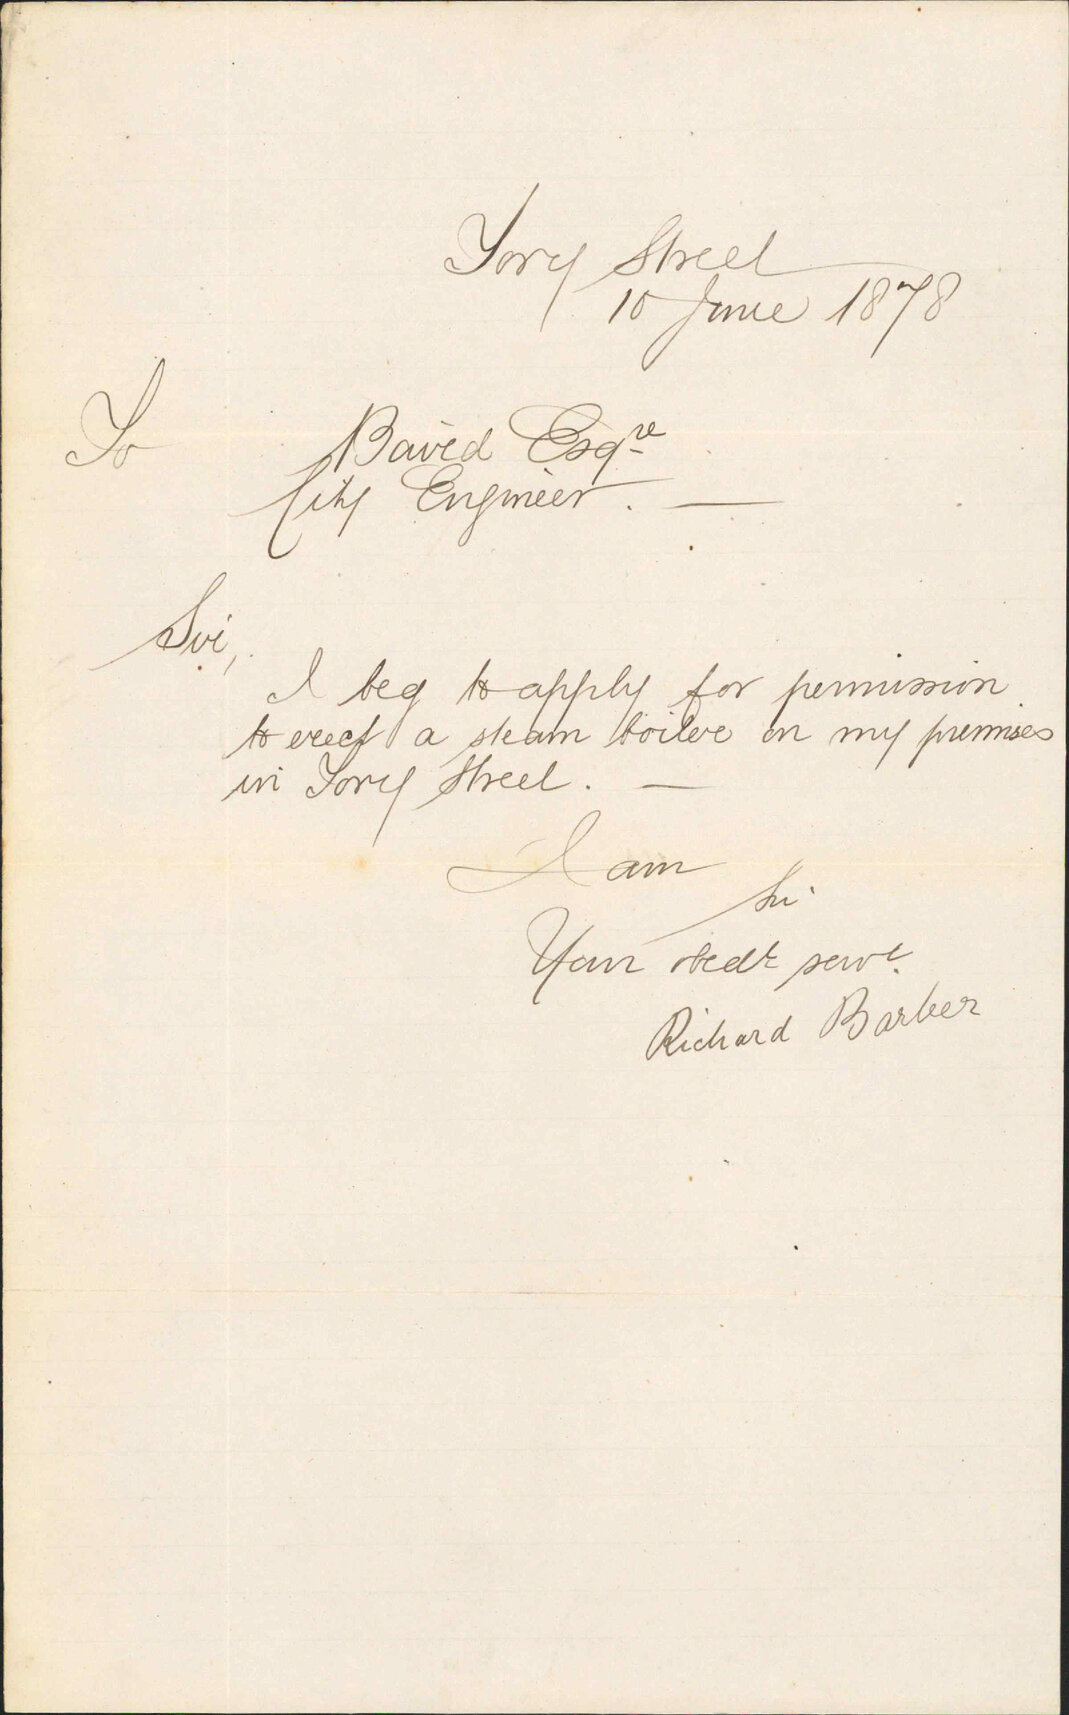 Tory Street
10 June 1878
To Baird Esqre
City Engineer. —
Sir,
I beg to apply for permission
to erect a steam boiler on my premises
in Tory Street. —
I am
Sir
Your obedt servt.
Richard Barber